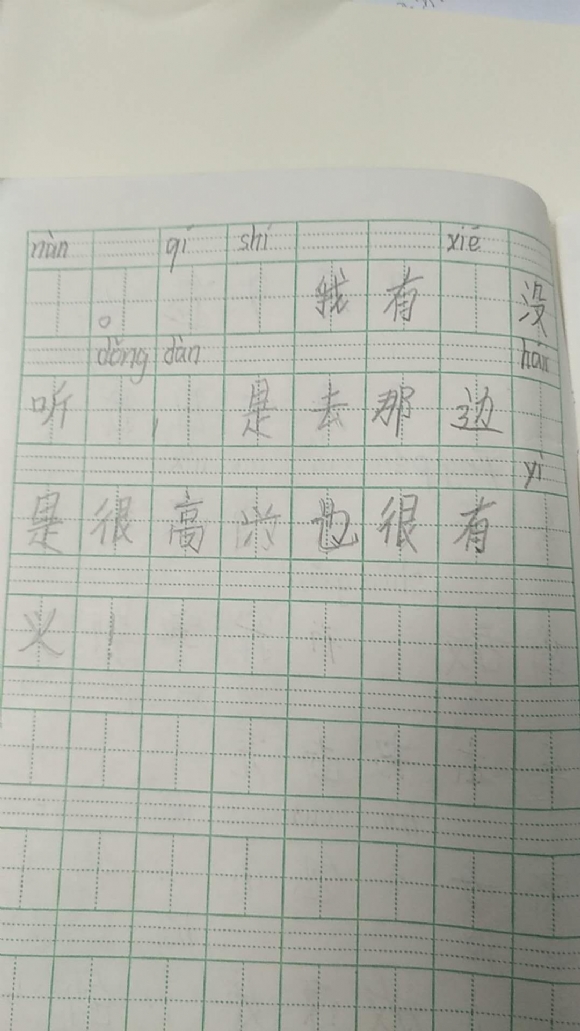 nàn qí shí xiē
。 我 有 没
dǒng dàn hái
听 ， 是 去 那 边
yì
是 很 高 兴 也 很 有
义 ！